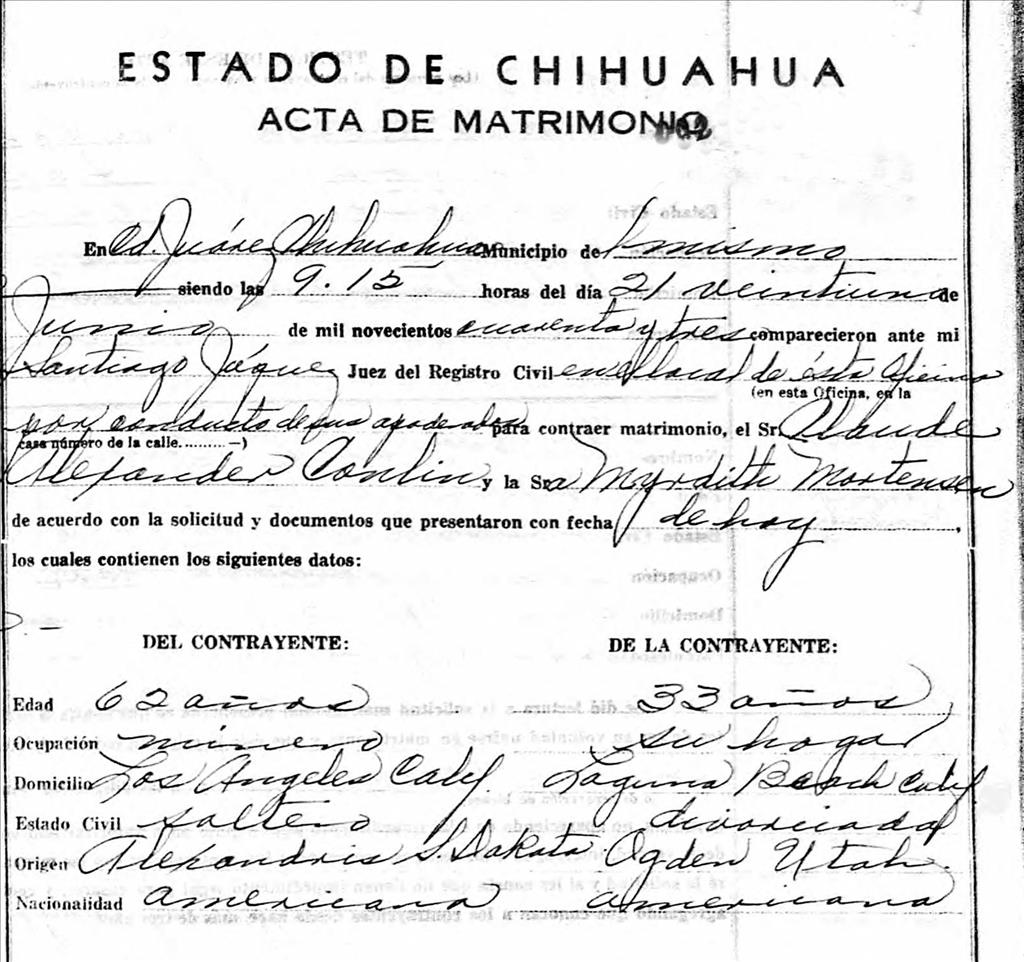 ESTADO DE CHIHUAHUA
ACTA DE MATRIMONIO
En Cd. Juárez Chihuahua Municipio de l mismo
siendo las 9.15 horas del día 21 veintiuno de
Junio de mil novecientos cuarenta y tres comparecieron ante mi
Santiago Jáquez Juez del Registro Civil en el local de ésta Oficina
(en esta Oficina, en la
por conducto de sus apoderados para contraer matrimonio, el Sr. Claude
casa número de la calle..........—)
Alexander Conlin y la Sra Myrdith Mortensen
de acuerdo con la solicitud y documentos que presentaron con fecha de hoy.
los cuales contienen los siguientes datos:
DEL CONTRAYENTE: DE LA CONTRAYENTE:
Edad 62 años 33 años
Ocupación minero su hogar
Domicilio Los Angeles Calif Laguna Beach Calif
Estado Civil soltero divorciada
Origen Alexandria S Dakota Ogden Utah
Nacionalidad americana americana